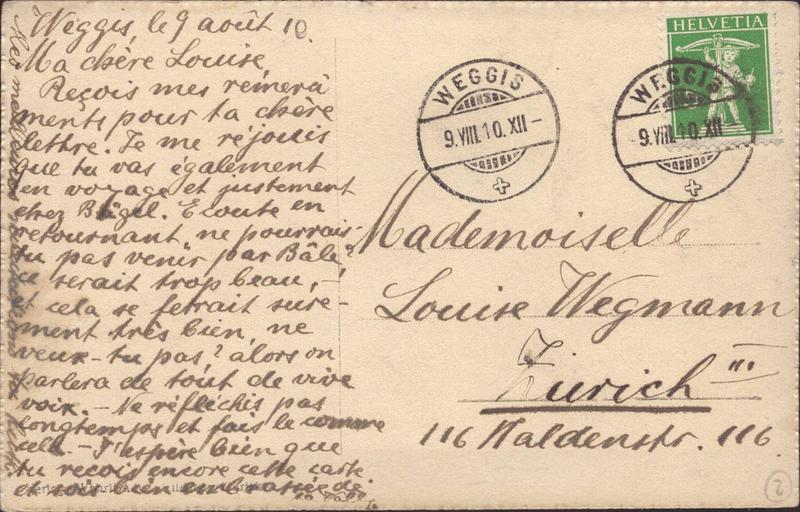 Weggis, le 9 août 10.
Ma chère Louise,
Reçois mes remercî
ments pour ta chère
lettre. Je me réjouis
que tu vas également
en voyage et justement
chez Bügel. Ecoute en
retournant, ne pourrais-
tu pas venir par Bâle?
Il serait trop beau, -
et cela se ferait sure-
ment très bien, ne
veux-tu pas? alors on
parlera de tout de vive
voix. - Ne réfléchis pas
longtemps et fais le comme
cela. - J'espère bien que
tu reçois encore cette carte
et sois bien embrassée de
ta
Nos meilleures
HELVETIA
WEGGIS
9.VIII.10.XII-
WEGGIS
-9.VIII.10.XII
Mademoiselle
Louise Wegmann
Zürich III
116 Haldenstr. 116.
2